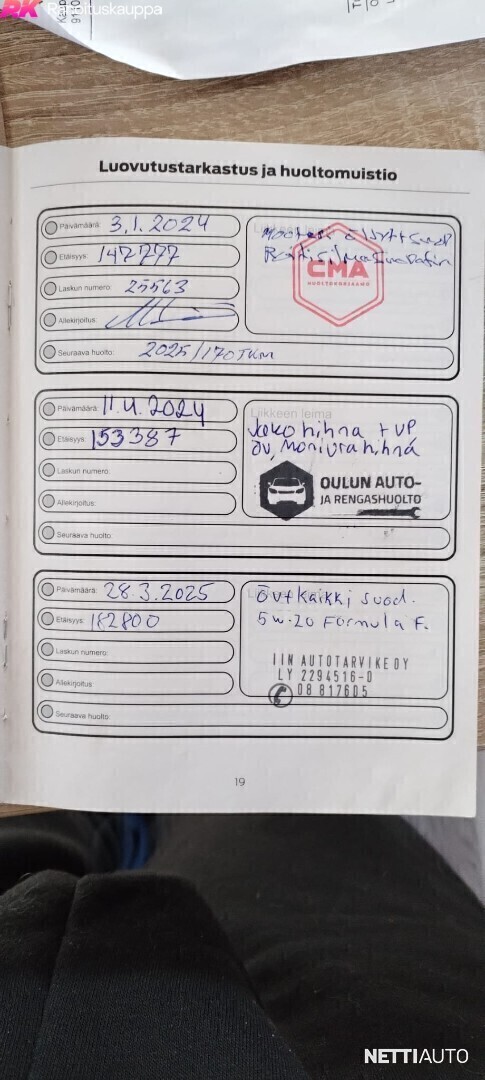 Rahoituskauppa
Luovutustarkastus ja huoltomuistio
Päivämäärä: 3.1.2024
Etäisyys: 147777
Laskun numero: 25563
Allekirjoitus:
Seuraava huolto: 2025/170TKM
CMA
HUOLTOKORJAAMO
Päivämäärä: 11.4.2024
Etäisyys: 153387
Laskun numero:
Allekirjoitus:
Seuraava huolto:
Liikkeen leima
Jakohihna + VP
öv, Moniurahihna
OULUN AUTO-
JA RENGASHUOLTO
Päivämäärä: 28.3.2025
Etäisyys: 182800
Laskun numero:
Allekirjoitus:
Seuraava huolto:
öv+kaikki suod.
5w-20 Formula F.
IIN AUTOTARVIKE OY
LY 2294516-0
08 817605
19
NETTIAUTO